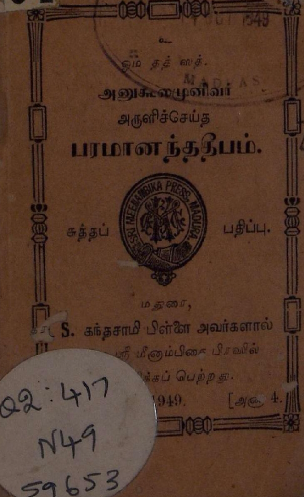 1949
MADRAS
உ
ஓம் தத் ஸத்.
அனுகூலமுனிவர்
அருளிச்செய்த
பரமானந்ததீபம்.
SRI MEENAMBIKA PRESS, MADURA
சுத்தப் பதிப்பு.
மதுரை,
S. கந்தசாமி பிள்ளை அவர்களால்
ஸ்ரீ மீனாம்பிகை பிரஸில்
பெற்றது.
1949. [அணா 4.
Q2:417
N49
59653